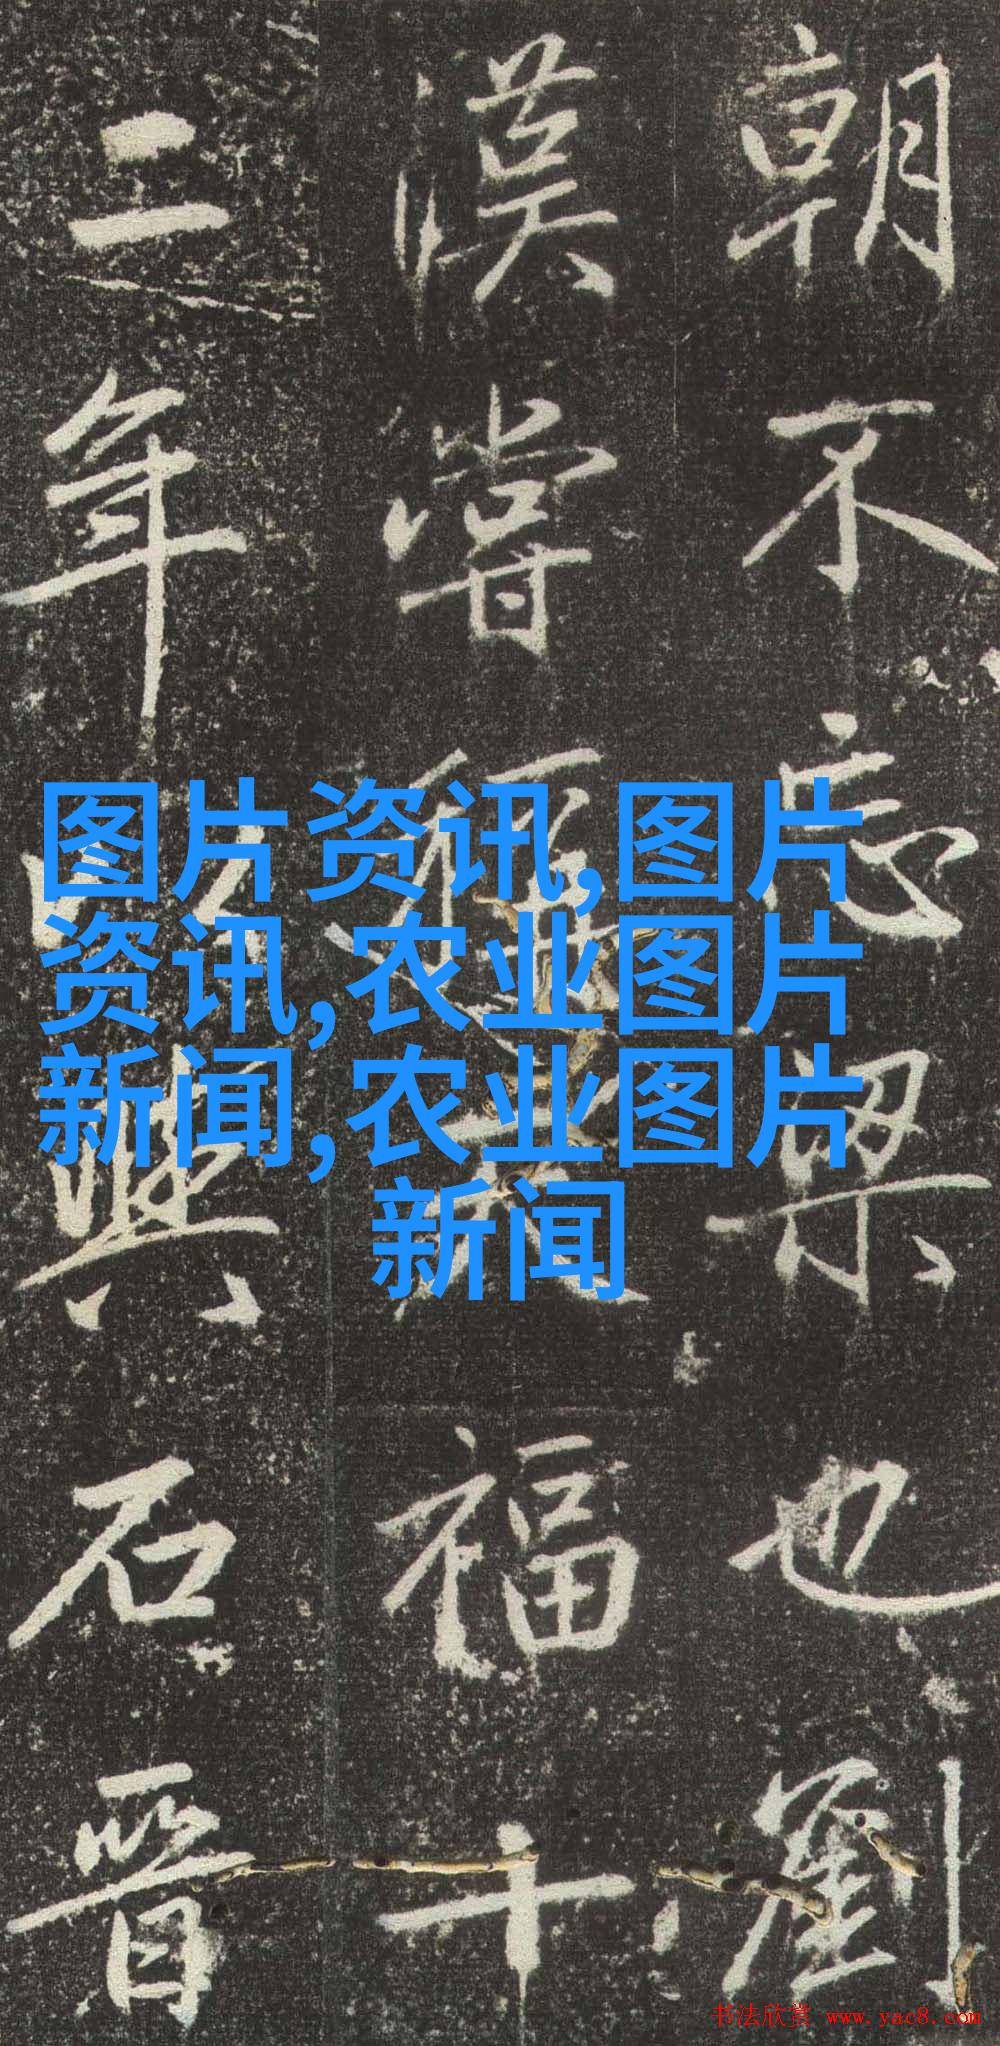 朝不忘梁也劉
漢嘗福十
二年與石晉
图片资讯,图片
资讯,农业图片
新闻,农业图片
新闻
书法欣赏 www.yac8.com